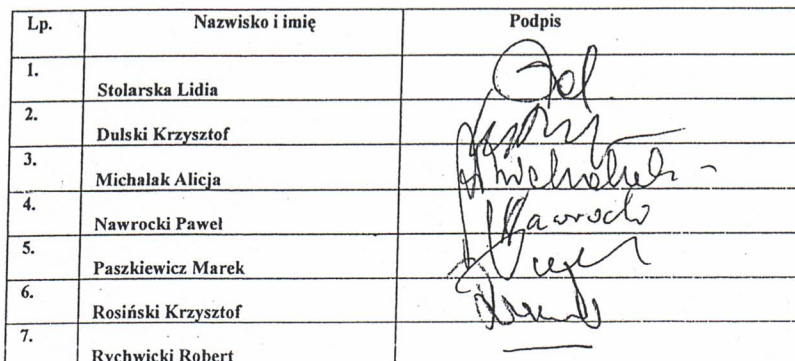 Lp. Nazwisko i imię Podpis
1. Stolarska Lidia
2. Dulski Krzysztof
3. Michalak Alicja Amichalak
4. Nawrocki Paweł Nawrocki
5. Paszkiewicz Marek
6. Rosiński Krzysztof
7. Rychwicki Robert